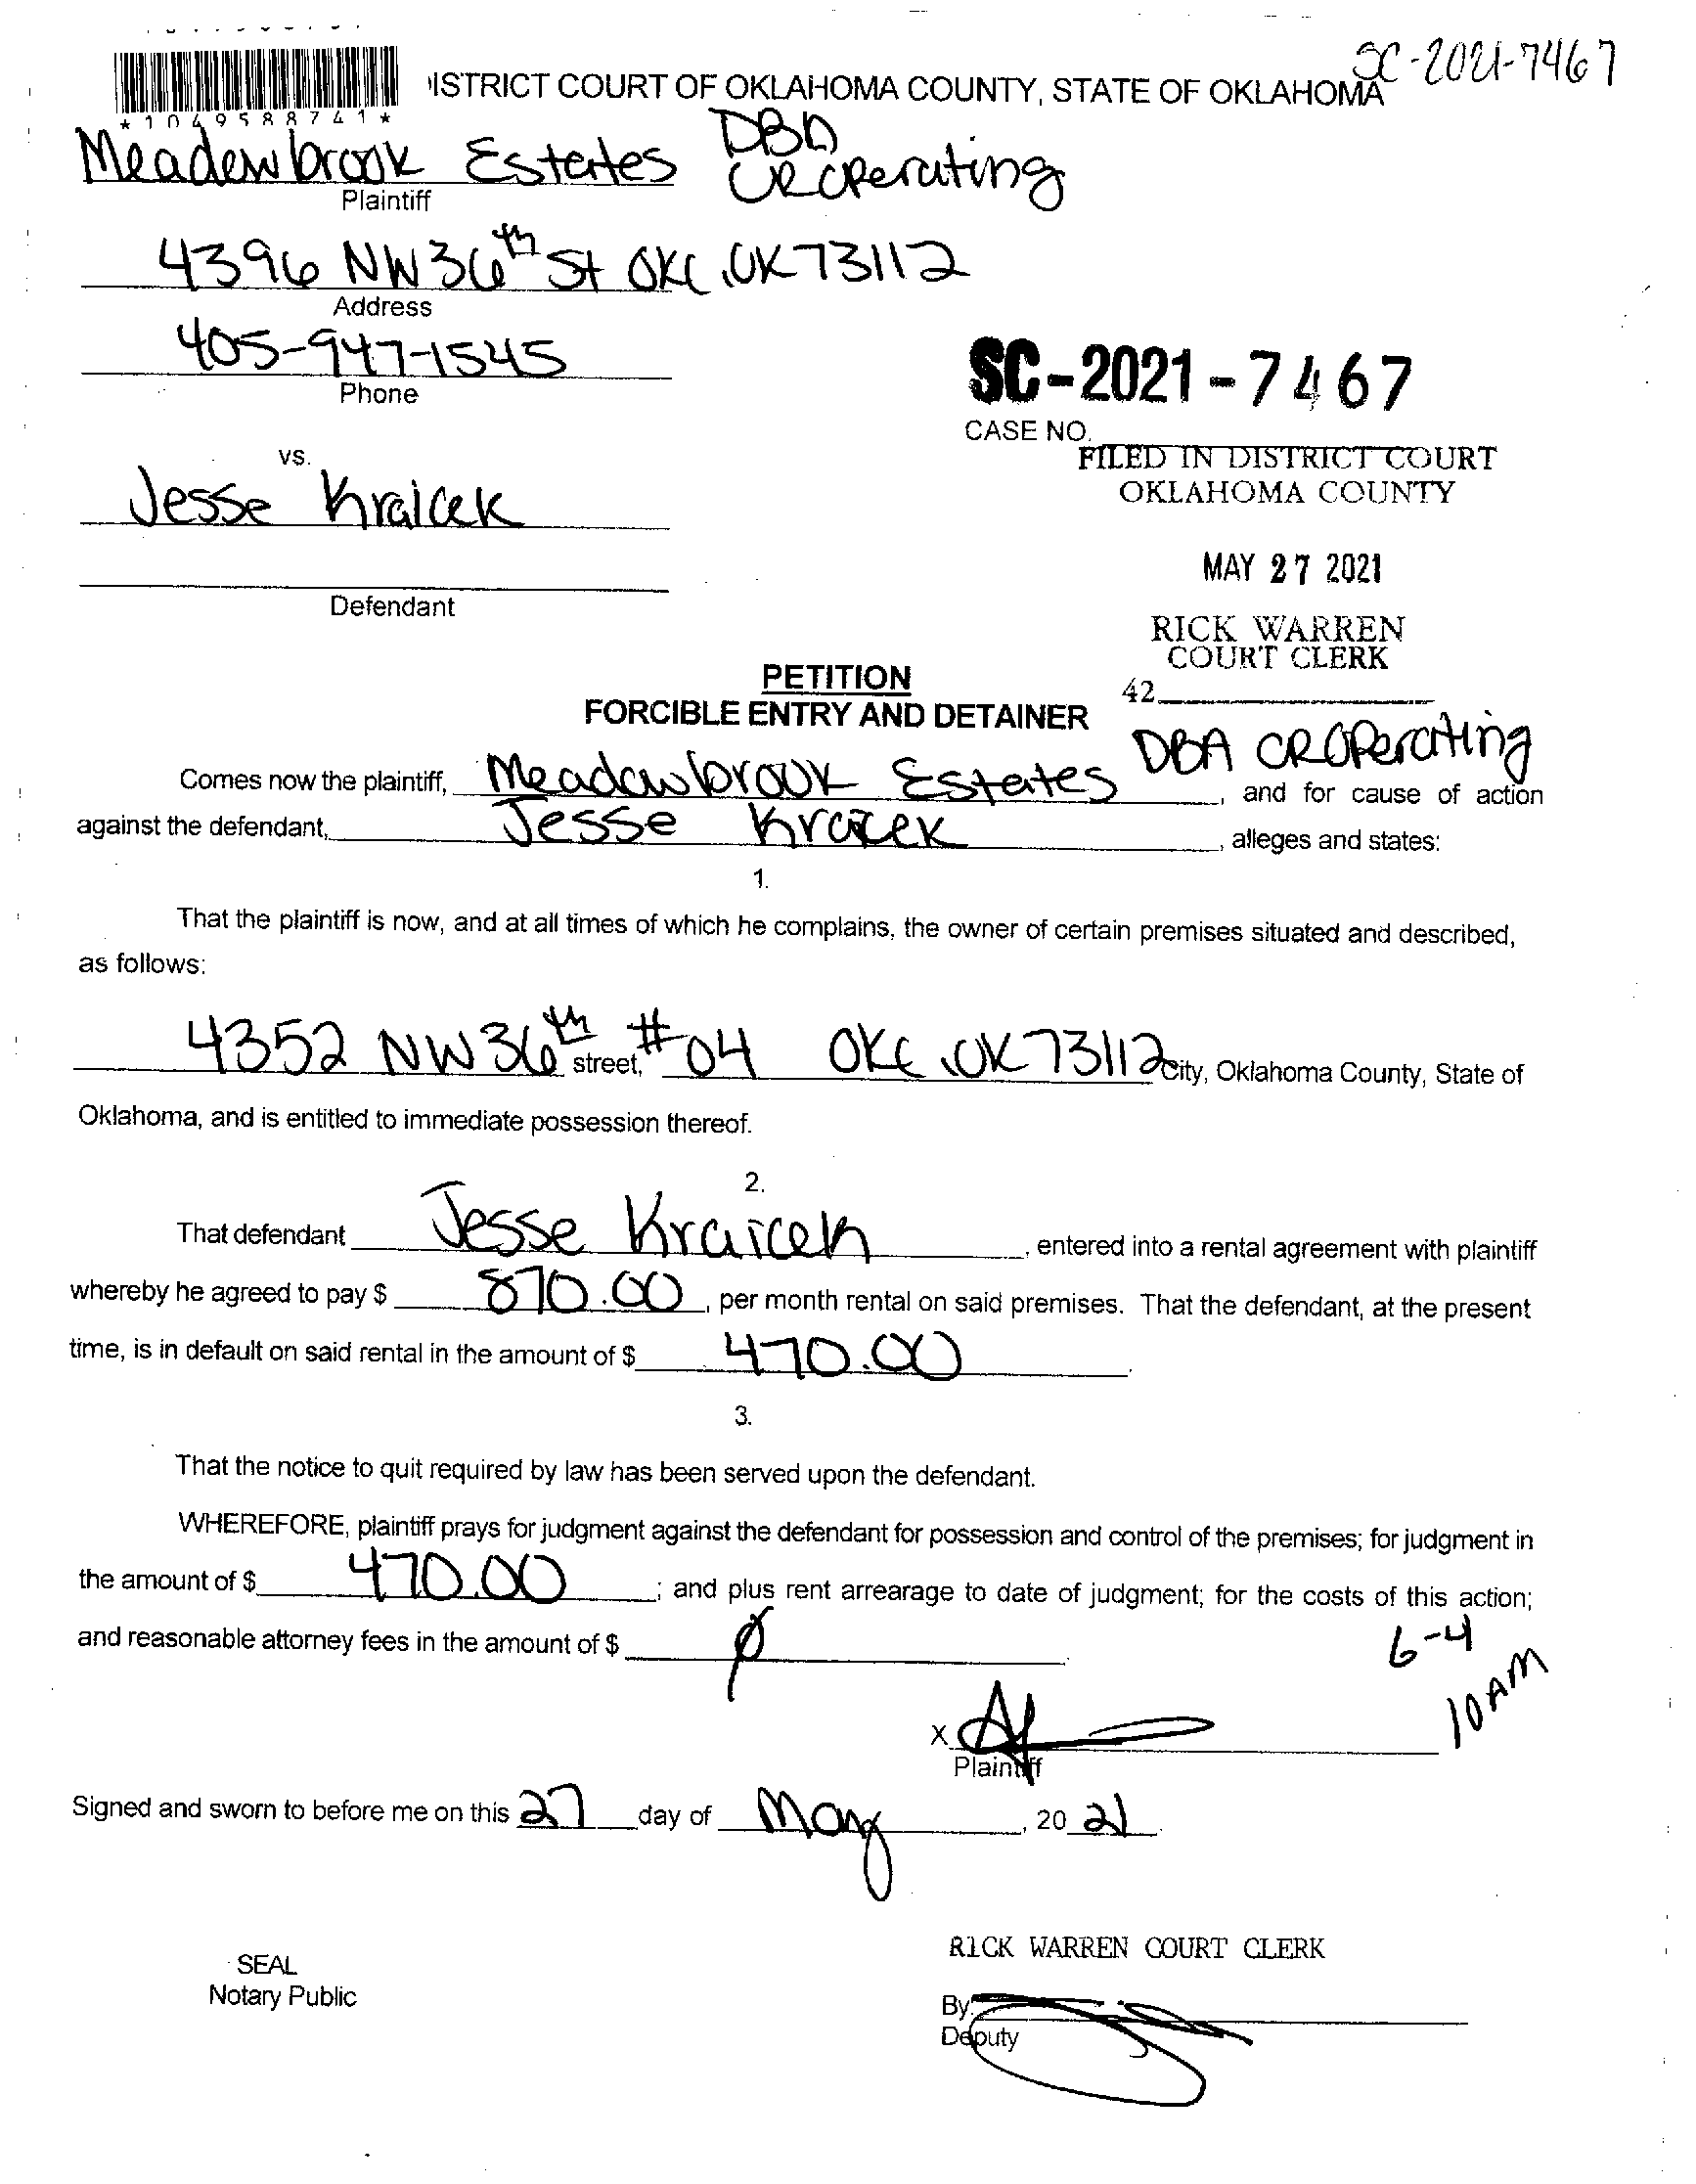 SC-2021-7467
ISTRICT COURT OF OKLAHOMA COUNTY, STATE OF OKLAHOMA
*1049588741*
Meadowbrook Estates DBA CROperating
Plaintiff
4396 NW 36th St OKC, OK 73112
Address
405-947-1545
Phone
SC-2021-7467
CASE NO.
vs.
FILED IN DISTRICT COURT
OKLAHOMA COUNTY
Jesse Kraicek
MAY 27 2021
Defendant
RICK WARREN
COURT CLERK
42
PETITION
FORCIBLE ENTRY AND DETAINER
Comes now the plaintiff, Meadowbrook Estates DBA CROperating, and for cause of action
against the defendant, Jesse Kraicek, alleges and states:
1.
That the plaintiff is now, and at all times of which he complains, the owner of certain premises situated and described,
as follows:
4352 NW 36th street, #04 OKC, OK 73112 City, Oklahoma County, State of
Oklahoma, and is entitled to immediate possession thereof.
2.
That defendant Jesse Kraicek, entered into a rental agreement with plaintiff
whereby he agreed to pay $ 870.00, per month rental on said premises. That the defendant, at the present
time, is in default on said rental in the amount of $ 470.00.
3.
That the notice to quit required by law has been served upon the defendant.
WHEREFORE, plaintiff prays for judgment against the defendant for possession and control of the premises; for judgment in
the amount of $ 470.00; and plus rent arrearage to date of judgment; for the costs of this action;
and reasonable attorney fees in the amount of $ ∅.
6-4
10 AM
X
Plaintiff
Signed and sworn to before me on this 27 day of May, 20 21.
RICK WARREN COURT CLERK
SEAL
Notary Public
By:
Deputy